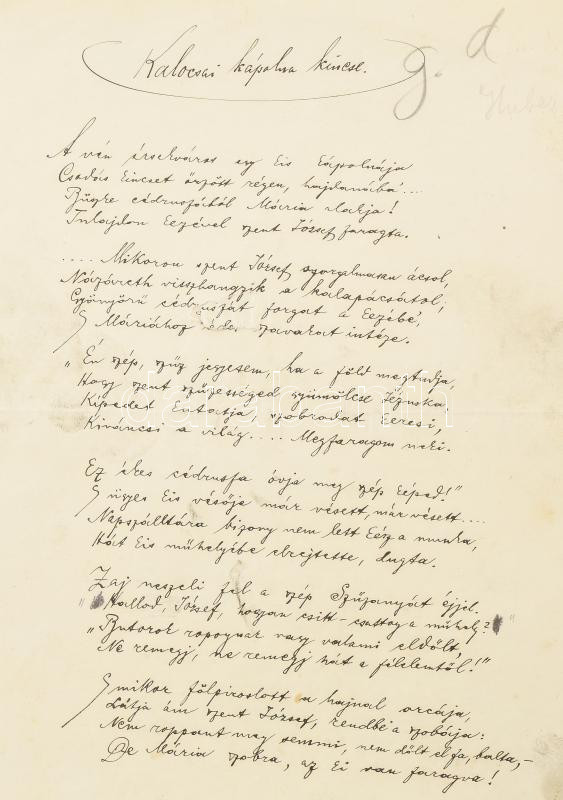 Kalocsai kápolna kincse.
g. d
Huber
A vén érsekváros egy kis kápolnája
Csodás kincset őrzött régen, hajdanába'....
Büszke cédrusfából Mária alakja!
Tulajdon kezével szent József faragta.
.... Mikoron szent József szorgalmasan ácsol,
Názáreth visszhangzik a kalapácsától;
Gyönyörű cédrusfát forgat a kezébe,
S Máriához édes szavakat intéze.
„Én szép, szűz jegyesem, ha a föld megtudja,
Hogy szent szüzességed gyümölcse Jézuska,
Képedet kutatja, szobrodat keresi,
Kiváncsi a világ.... Megfaragom neki.
Ez ékes cédrusfa óvja meg szép képed!"
S ügyes kis vésője már vésett, már vésett....
Napszálltára bizony nem lett kész a munka,
Hát kis műhelyébe elrejtette, dugta.
Zaj neszeli fel a szép Szűzanyát éjjel.
„Hallod, József, hogyan csitt-csattog a műhely?"
„Butorok ropognak vagy valami eldőlt,
Ne remegj, ne remegj hát a félelemtől!"
S mikor fölpiroslott a hajnal orcája,
Látja ám szent József, rendbe' a szobája:
Nem roppant meg semmi, nem dőlt el fa, balta,-
De Mária szobra, az ki van faragva!